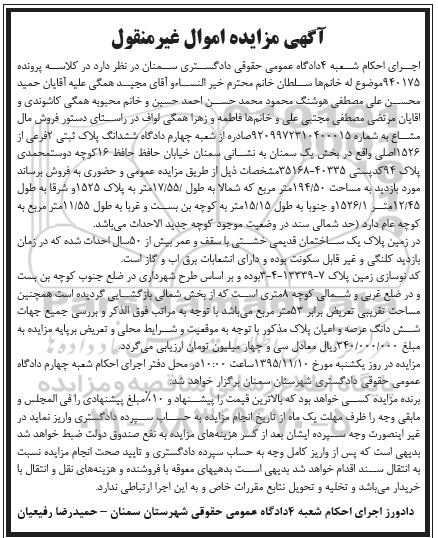 آگهی مزایده اموال غیرمنقول
اجرای احکام شعبه ۴دادگاه عمومی حقوقی دادگستری سمنان در نظر دارد در کلاسه پرونده
۹۴۰۱۷۵موضوع له خانم‌ها سلطان خانم محترم خیر النساءو آقای مجید همگی علیه آقایان حمید
محسن علی مصطفی هوشنگ محمود محمد حسن احمد حسین و خانم محبوبه همگی کاشوندی و
اقایان مرتضی مصطفی مجتبی علی و خانم‌ها فاطمه و زهرا همگی لواف در راستای دستور فروش مال
مشاع به شماره ۹۲۰۹۹۷۲۳۱۰۴۰۰۰۱۵صادره از شعبه چهارم دادگاه ششدانگ پلاک ثبتی ۲فرعی از
۱۵۲۶اصلی واقع در بخش یک سمنان به نشانی سمنان خیابان حافظ حافظ ۱۶کوچه دوستمحمدی
پلاک ۹۴کدپستی ۴۰۳۳۵-۳۵۱۶۸مشخصات ذیل از طریق مزایده عمومی و حضوری به فروش برساند
مورد بازدید به مساحت ۱۹۴/۵۰متر مربع که شمالا به طول /۱۷/۵۵متر به پلاک ۱۵۲۵و شرقا به طول
۱۲/۴۵متر ۱۵۲۶/۱و جنوبا به طول ۱۵/۱۵متر به کوچه بن بست و غربا به طول ۱۱/۵۵متر مربع به
کوچه عام دارد (حد شمالی سند در وضعیت موجود کوچه جدید الاحداث می‌باشد.
در زمین پلاک یک ساختمان قدیمی خشتی با سقف و عمر بیش از ۵۰سال احداث شده که در زمان
بازدید کلنگی و غیر قابل سکونت بوده و دارای انشعابات برق اب و گاز است.
کد نوسازی زمین پلاک ۷-۱۳۳۳۹-۴-۳بوده و بر اساس طرح شهرداری در ضلع جنوب کوچه بن بست
و در ضلع غربی و شمالی کوچه ۸متری است که از بخش شمالی بازگشایی گردیده است همچنین
مساحت تقریبی تعریض برابر ۵۳متر مربع می‌باشد با توجه به مراتب فوق الذکر و بررسی جمیع جهات
شش دانگ عرصه و اعیان پلاک مذکور با توجه به موقعیت و شرایط محلی و تعریض برپایه مزایده به
مبلغ ۳۴۰/۰۰۰/۰۰۰ریال معادل سی و چهار میلیون تومان ارزیابی می‌گردد.
مزایده در روز یکشنبه مورخ ۱۳۹۵/۱۱/۱۰ساعت ۱۰:۰۰در محل دفتر اجرای احکام شعبه چهارم دادگاه
عمومی حقوقی دادگستری شهرستان سمنان برگزار خواهد شد.
برنده مزایده کسی خواهد بود که بالاترین قیمت را پیشنهاد و ۱۰٪مبلغ پیشنهادی را فی المجلس و
مابقی وجه را ظرف مهلت یک ماه از تاریخ انجام مزایده به حساب سپرده دادگستری واریز نماید در
غیر اینصورت وجه سپرده ایشان بعد از کسر هزینه‌های مزایده به نفع صندوق دولت ضبط خواهد شد
بدیهی است که پس از واریز کامل وجه به حساب سپرده دادگستری و تایید صحت انجام مزایده نسبت
به انتقال سند اقدام خواهد شد بدیهی است بدهیهای معوقه با فروشنده و هزینه‌های نقل و انتقال با
خریدار می‌باشد و تخلیه و تحویل نتابع مقررات خاص و به این اجرا ارتباطی ندارد.
دادورز اجرای احکام شعبه ۴دادگاه عمومی حقوقی شهرستان سمنان – حمیدرضا رفیعیان